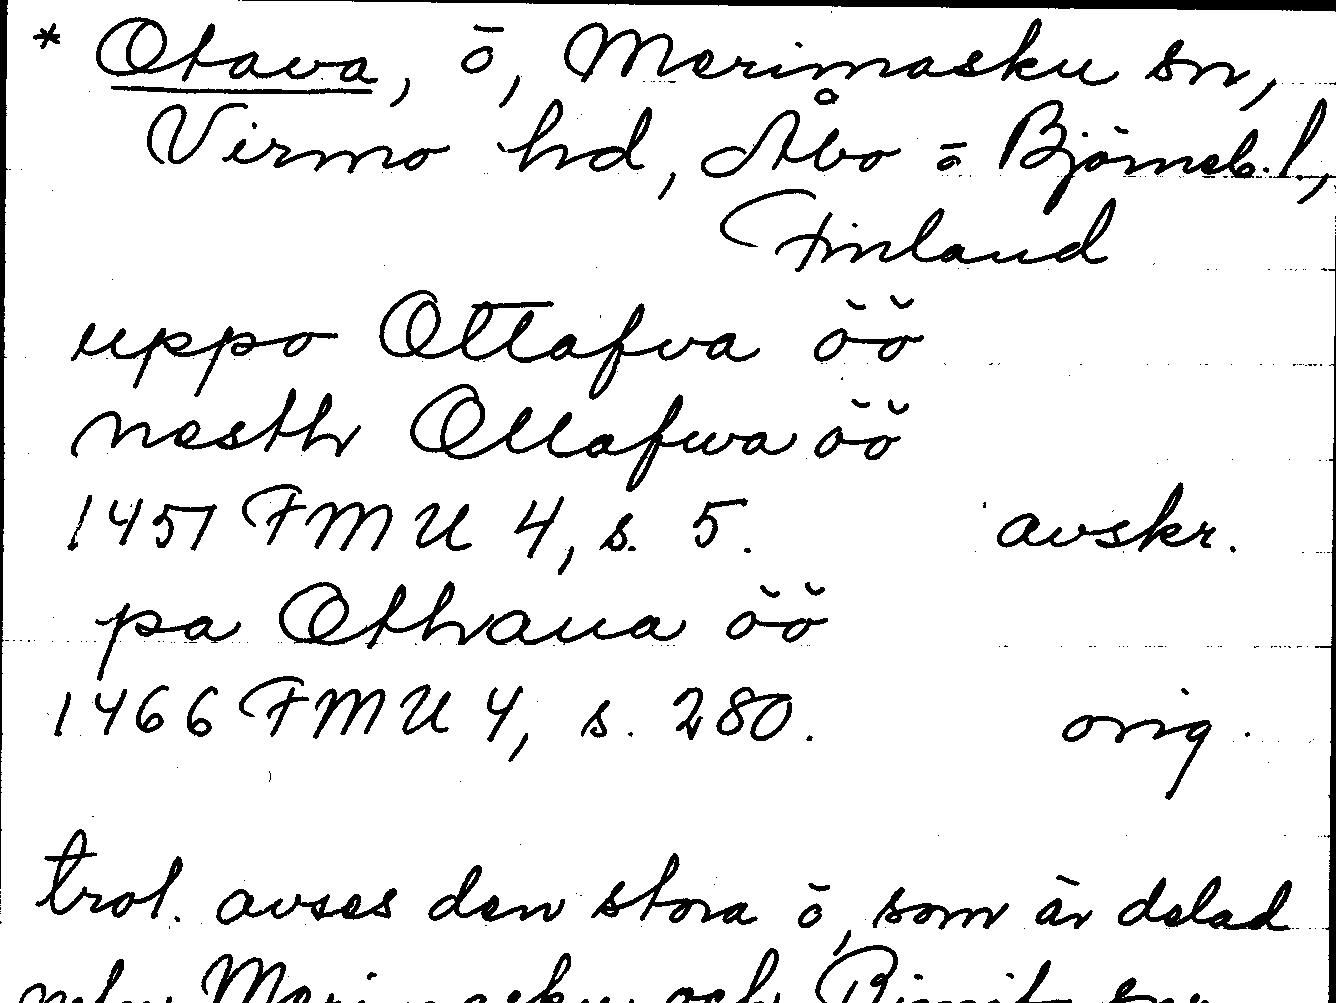 * Otava, ö, Merimasku sn,
Virmo hd, Åbo o Björneb. l.,
Finland
uppo Ottafva öö
nesth Ollafwa öö
1457 FMU 4, s. 5. avskr.
pa Othaua öö
1466 FMU 4, s. 280. orig.
trol. avses den stora ö, som är delad
mln Merimasku och Rimito snr